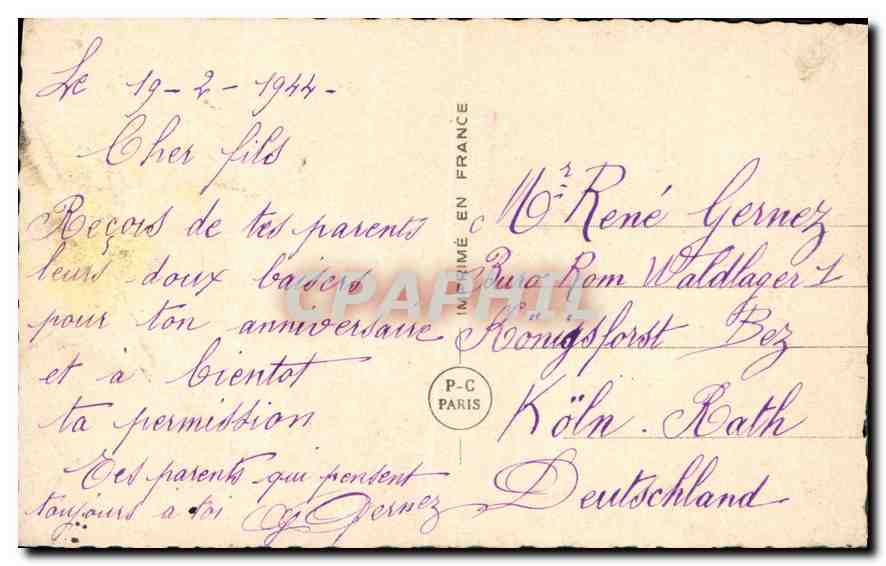 Le 19-2-1944-
Cher fils
Reçois de tes parents
leurs doux baisers
pour ton anniversaire
et à bientot
ta permission
Tes parents qui pensent
toujours à toi
G Gernez
IMPRIMÉ EN FRANCE
P-C
PARIS
Mr René Gernez
Buro Rom Waldlager 1
Königsforst Bez
Köln. Rath
Deutschland
CPAPHIL